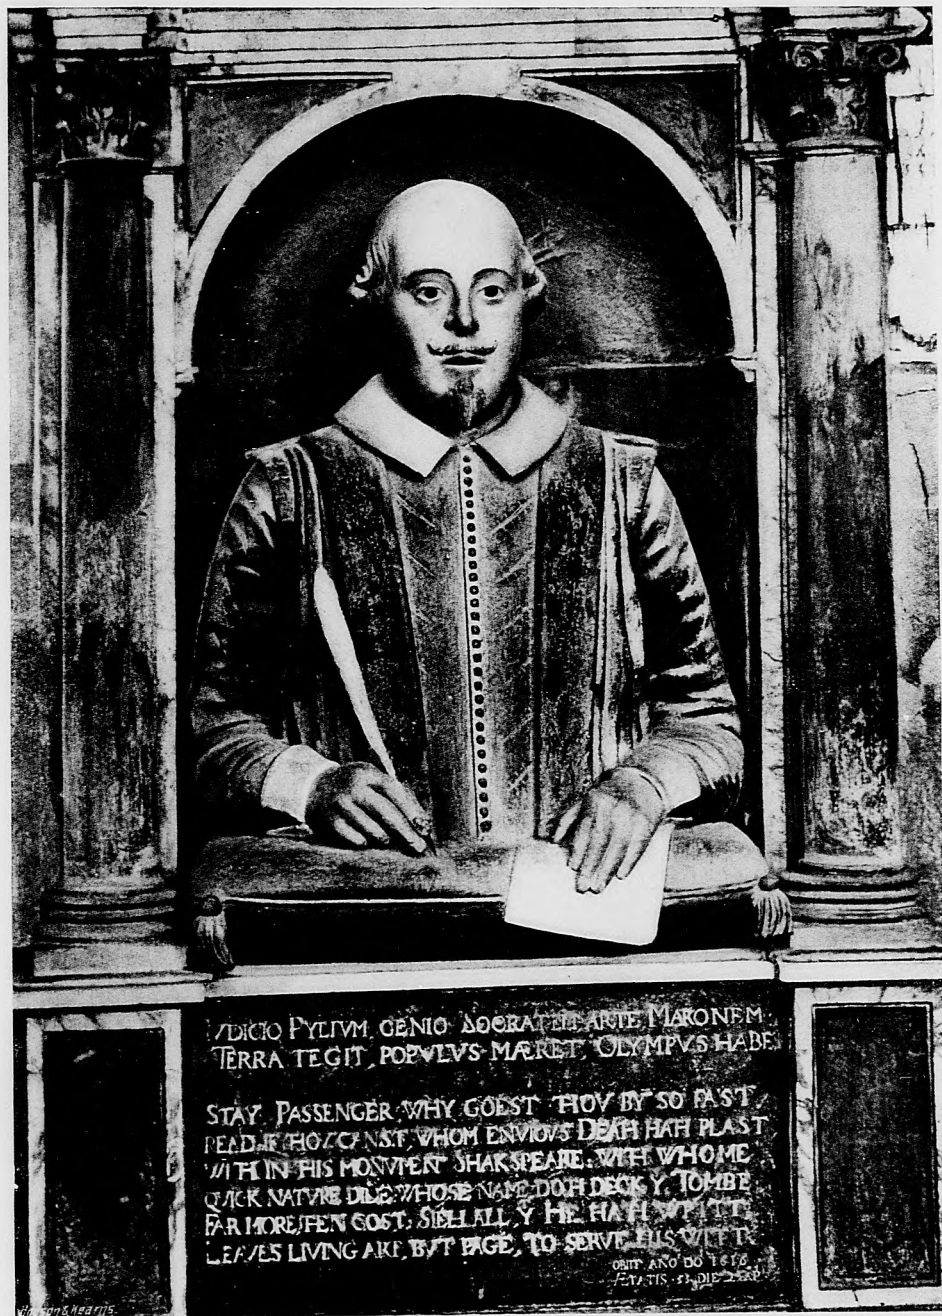 IVDICIO PYLIVM GENIO SOCRATEM ARTE MARONEM
TERRA TEGIT, POPVLVS MÆRET, OLYMPVS HABE
STAY PASSENGER, WHY GOEST THOV BY SO FAST
READ IF THOV CANST, WHOM ENVIOVS DEATH HATH PLAST
WITH IN THIS MONVMENT SHAKSPEARE: WITH WHOME
QVICK NATVRE DIDE: WHOSE NAME DOTH DECK Y TOMBE
FAR MORE, THEN COST: SIEH ALL, Y HE HATH WRITT
LEAVES LIVING ART, BVT PAGE, TO SERVE HIS WITT
OBIIT ANO DO 1616
ÆTATIS 53 DIE 23 AP
& Kearns